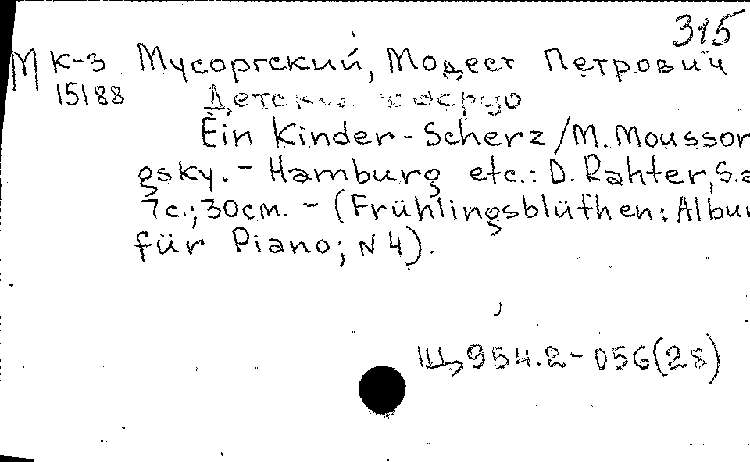 315
М К-3 Мусоргский, Модест Петрович
15188 Детское скерцо
Ein Kinder-Scherz/M. Moussor
gsky. – Hamburg etc.: D. Rahter, S.a
7с.; 30см. – (Frühlingsblüthen: Albu
für Piano; N 4).
Щ954.2-056(28)